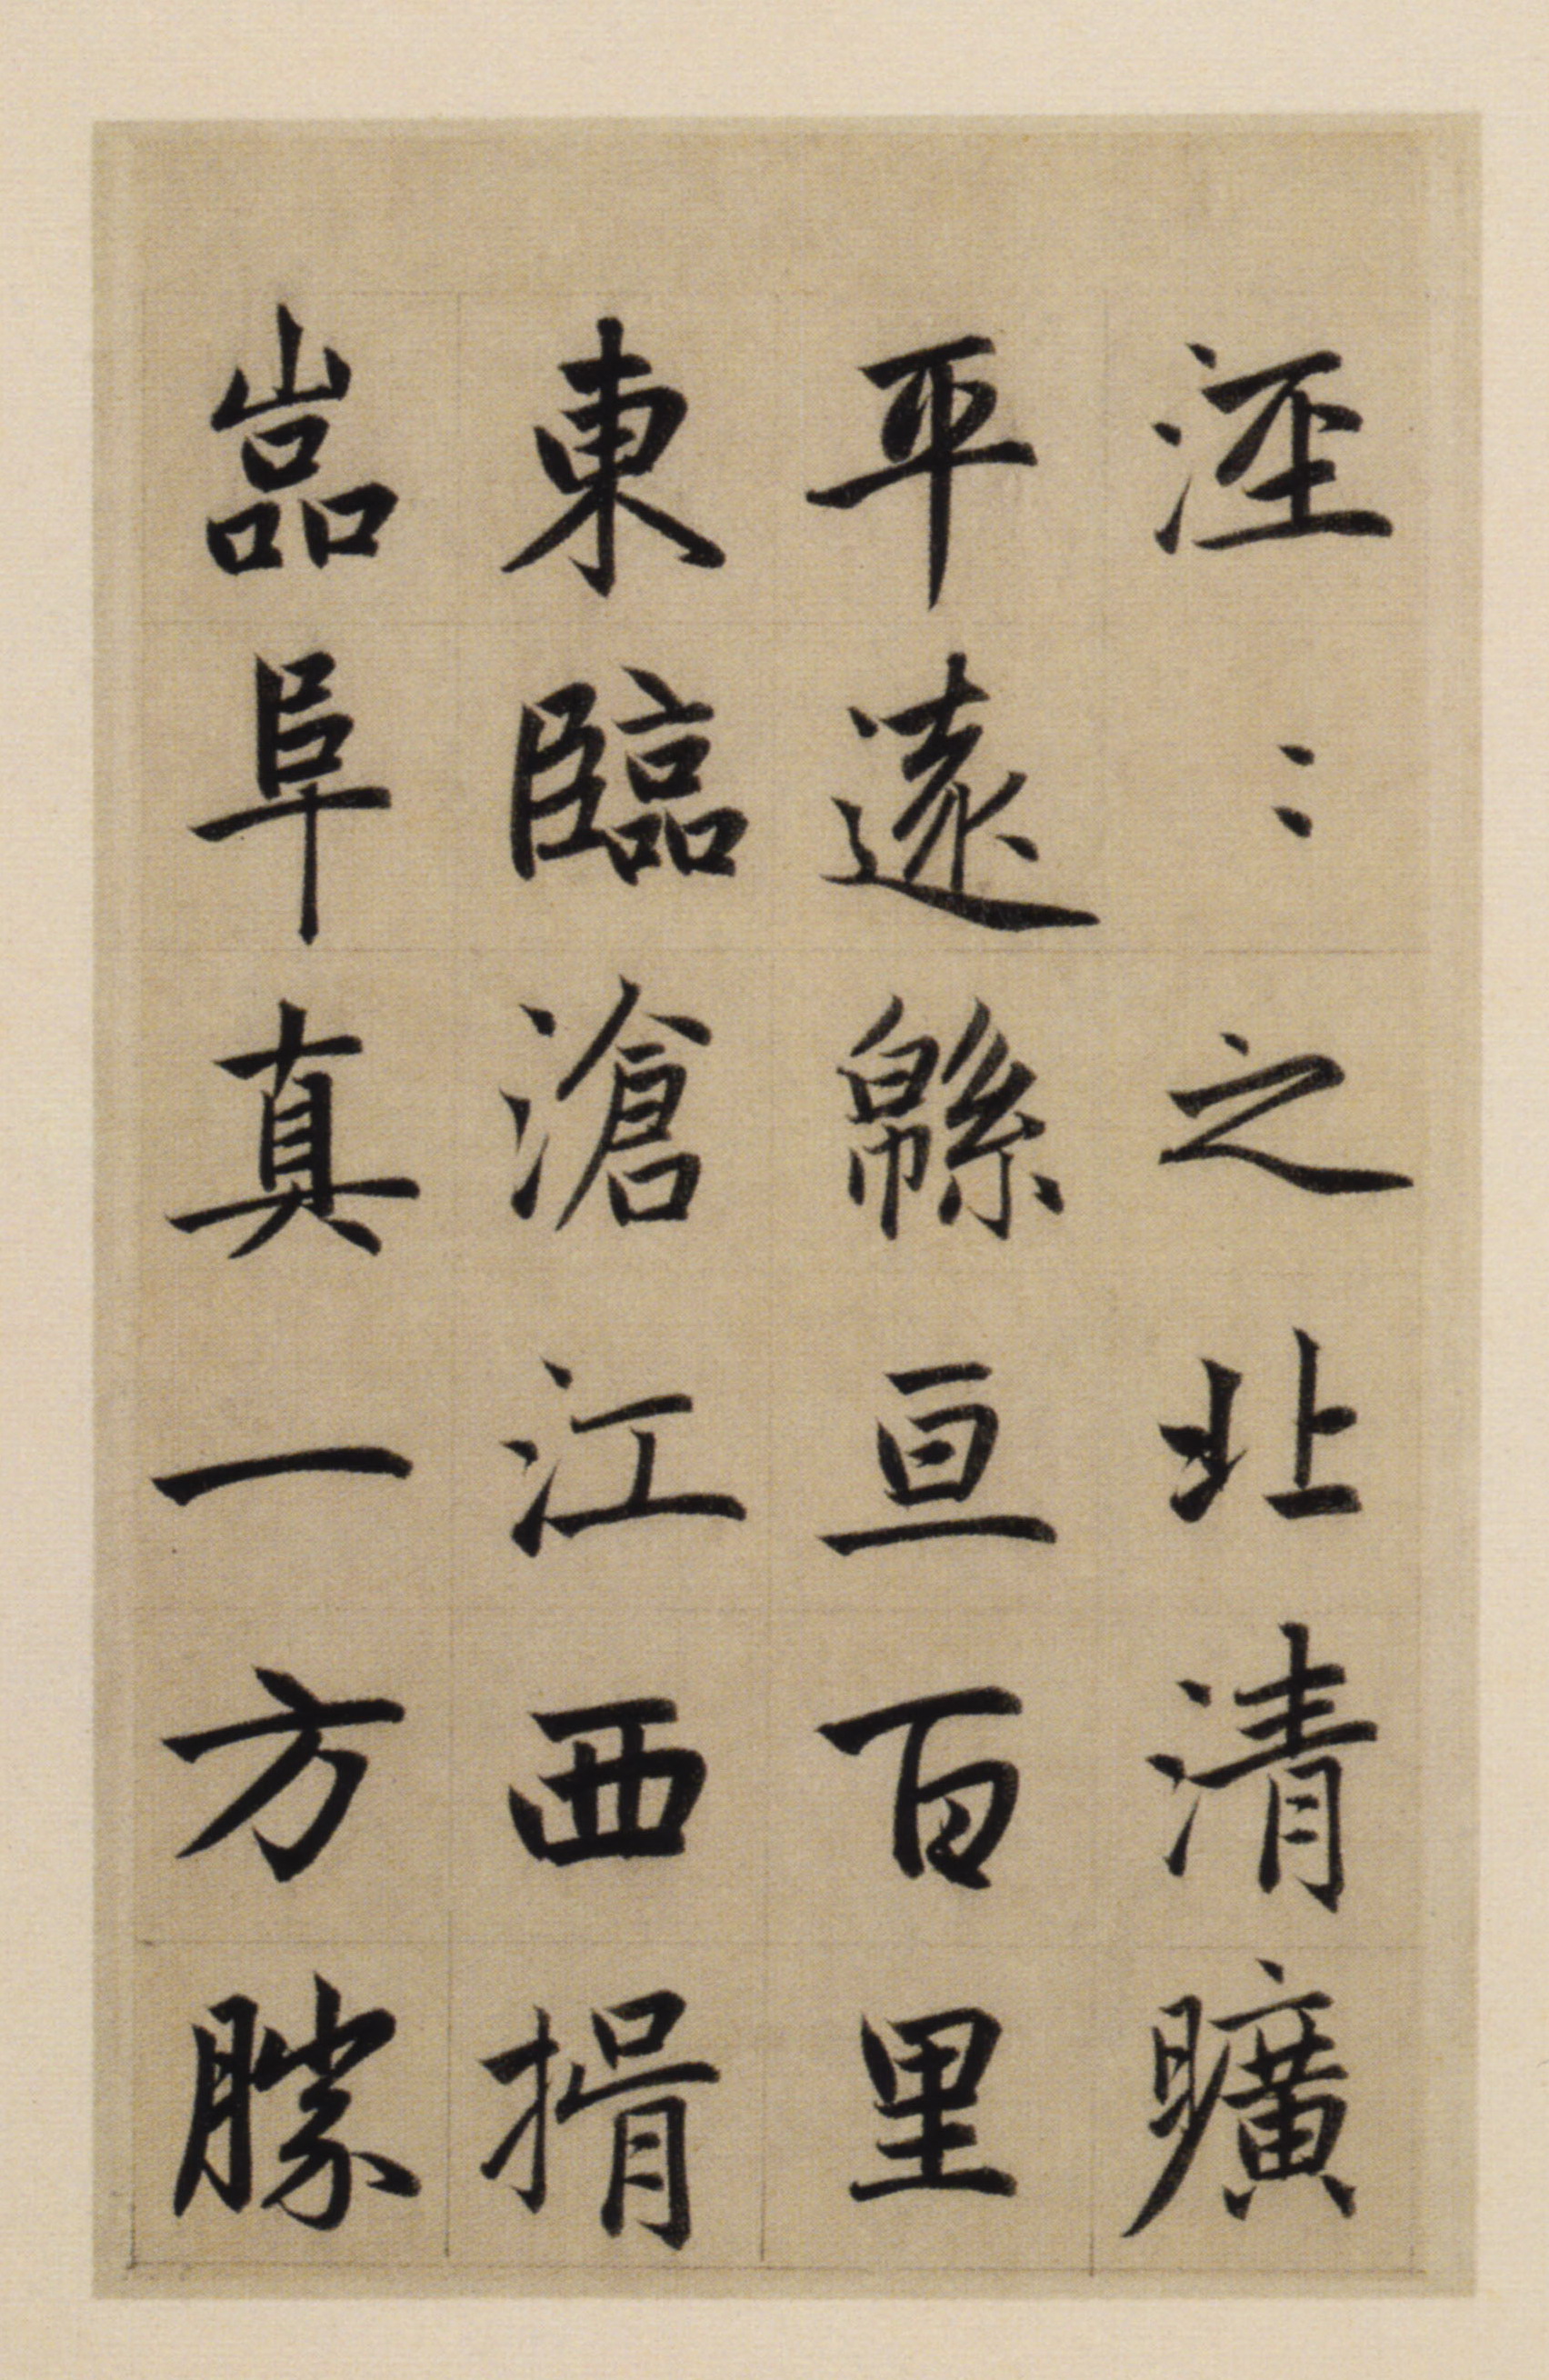 涇〻之北清曠
平遠緜亘百里
東臨滄江西揖
嵓阜真一方勝